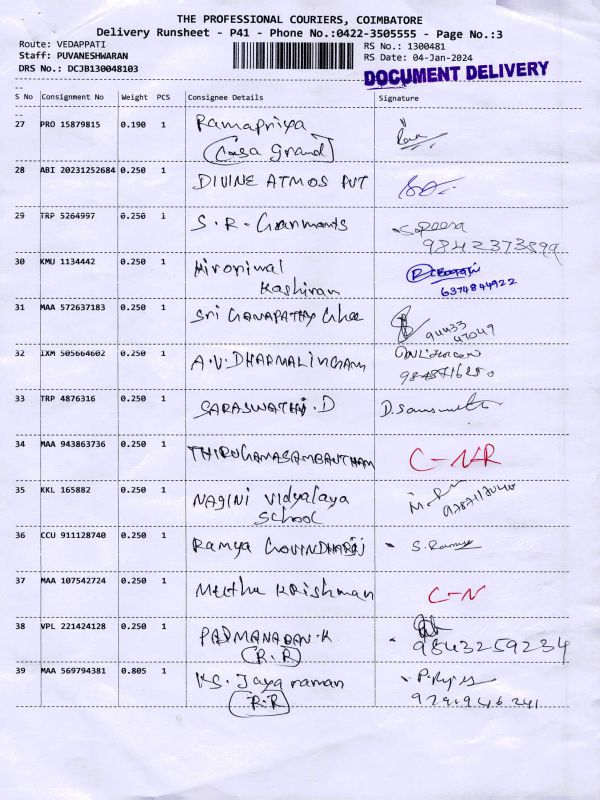 THE PROFESSIONAL COURIERS, COIMBATORE
Delivery Runsheet - P41 - Phone No.:0422-3505555 - Page No.:3
Route: VEDAPPATI
RS No.: 1300481
Staff: PUVANESHWARAN
RS Date: 04-Jan-2024
DRS No.: DCJB130048103
DOCUMENT DELIVERY
S No Consignment No Weight PCS Consignee Details Signature
27 PRO 15879815 0.190 1 Ramapriya
Casa Grand
28 ABI 20231252684 0.250 1 DIVINE ATMOS PVT
29 TRP 5264997 0.250 1 S.R-Garments
9842373899
30 KMU 1134442 0.250 1
6374844922
31 MAA 572637183 0.250 1 Sri GANAPATHY Ghee
94433
47049
32 IXM 505664602 0.250 1 A.V.DHARMALINGAM
33 TRP 4876316 0.250 1 SARASWATHI.D
34 MAA 943863736 0.250 1 THIRUGANASAMBANTHAM C-NR
35 KKL 165882 0.250 1 NAGINI Vidyalaya
School
36 CCU 911128740 0.250 1 Ramya GOVINDHARAJ S. Ramya
37 MAA 107542724 0.250 1 Meetha Krishnan C-N
38 VPL 221424128 0.250 1 PADMANABAN.K
R.R
9843259234
39 MAA 569794381 0.805 1 KS. Jaya raman
R.R